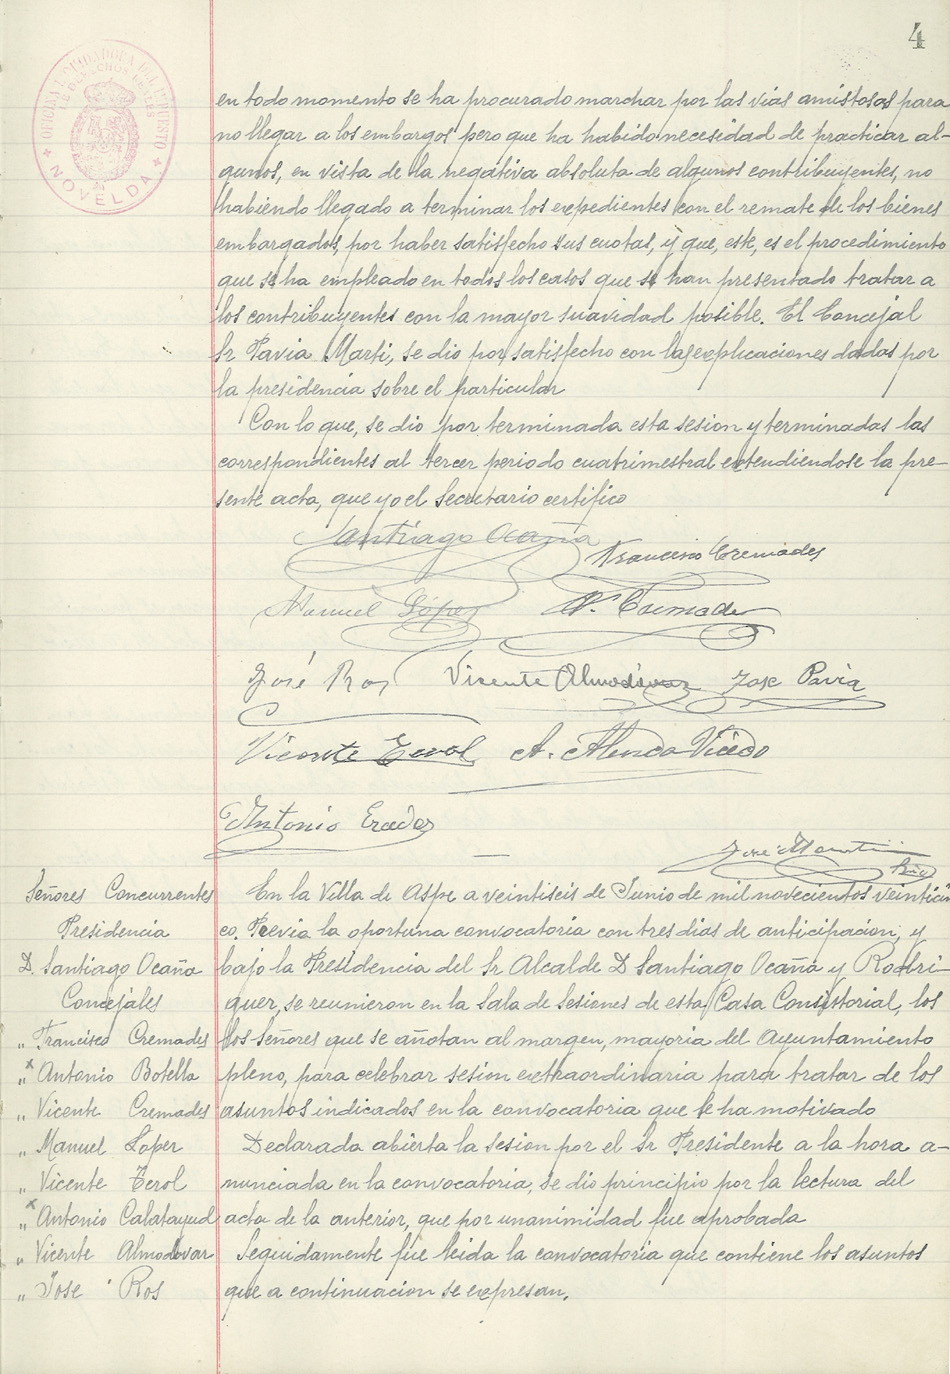 4
OFICINA LIQUIDADORA DEL IMPUESTO
DE DERECHOS REALES
NOVELDA
en todo momento se ha procurado marchar por las vias amistosas para
no llegar a los embargos pero que ha habido necesidad de practicar al-
gunos, en vista de la negativa absoluta de algunos contribuyentes, no
habiendo llegado a terminar los expedientes con el remate de los bienes
embargados, por haber satisfecho sus cuotas, y que, este, es el procedimiento
que se ha empleado en todos los casos que se han presentado tratar a
los contribuyentes con la mayor suavidad posible. El Concejal
Sr Pavia Marti, se dio por satisfecho con las explicaciones dadas por
la presidencia sobre el particular
Con lo que, se dio por terminada esta sesion y terminadas las
correspondientes al tercer periodo cuatrimestral extendiendose la pre-
sente acta, que yo el Secretario certifico
Santiago Ocaña
Francisco Cremades
Manuel López V. Cremades
José Ros Vicente Almodóvar Jose Pavia
Vicente Cerol A. Vicedo
Antonio
José
Señores Concurrentes
Presidencia
D. Santiago Ocaña
Concejales
" Francisco Cremades
" Antonio Botella
" Vicente Cremades
" Manuel Loper
" Vicente Cerol
" Antonio Calatayud
" Vicente Almodovar
" Jose Ros
En la Villa de Aspe a veintiseis de Junio de mil novecientos veinticin
co. Previa la oportuna convocatoria con tres dias de anticipacion, y
bajo la Presidencia del Sr Alcalde D Santiago Ocaña y Rodri-
guer, se reunieron en la Sala de Sesiones de esta Casa Consistorial, los
los señores que se añotan al margen, mayoria del Ayuntamiento
pleno, para celebrar sesion extraordinaria para tratar de los
asuntos indicados en la convocatoria que le ha motivado
Declarada abierta la Sesion por el Sr Presidente a la hora a-
nunciada en la convocatoria, se dio principio por la lectura del
acta de la anterior, que por unanimidad fue aprobada
Seguidamente fue leida la convocatoria que contiene los asuntos
que a continuacion se expresan.